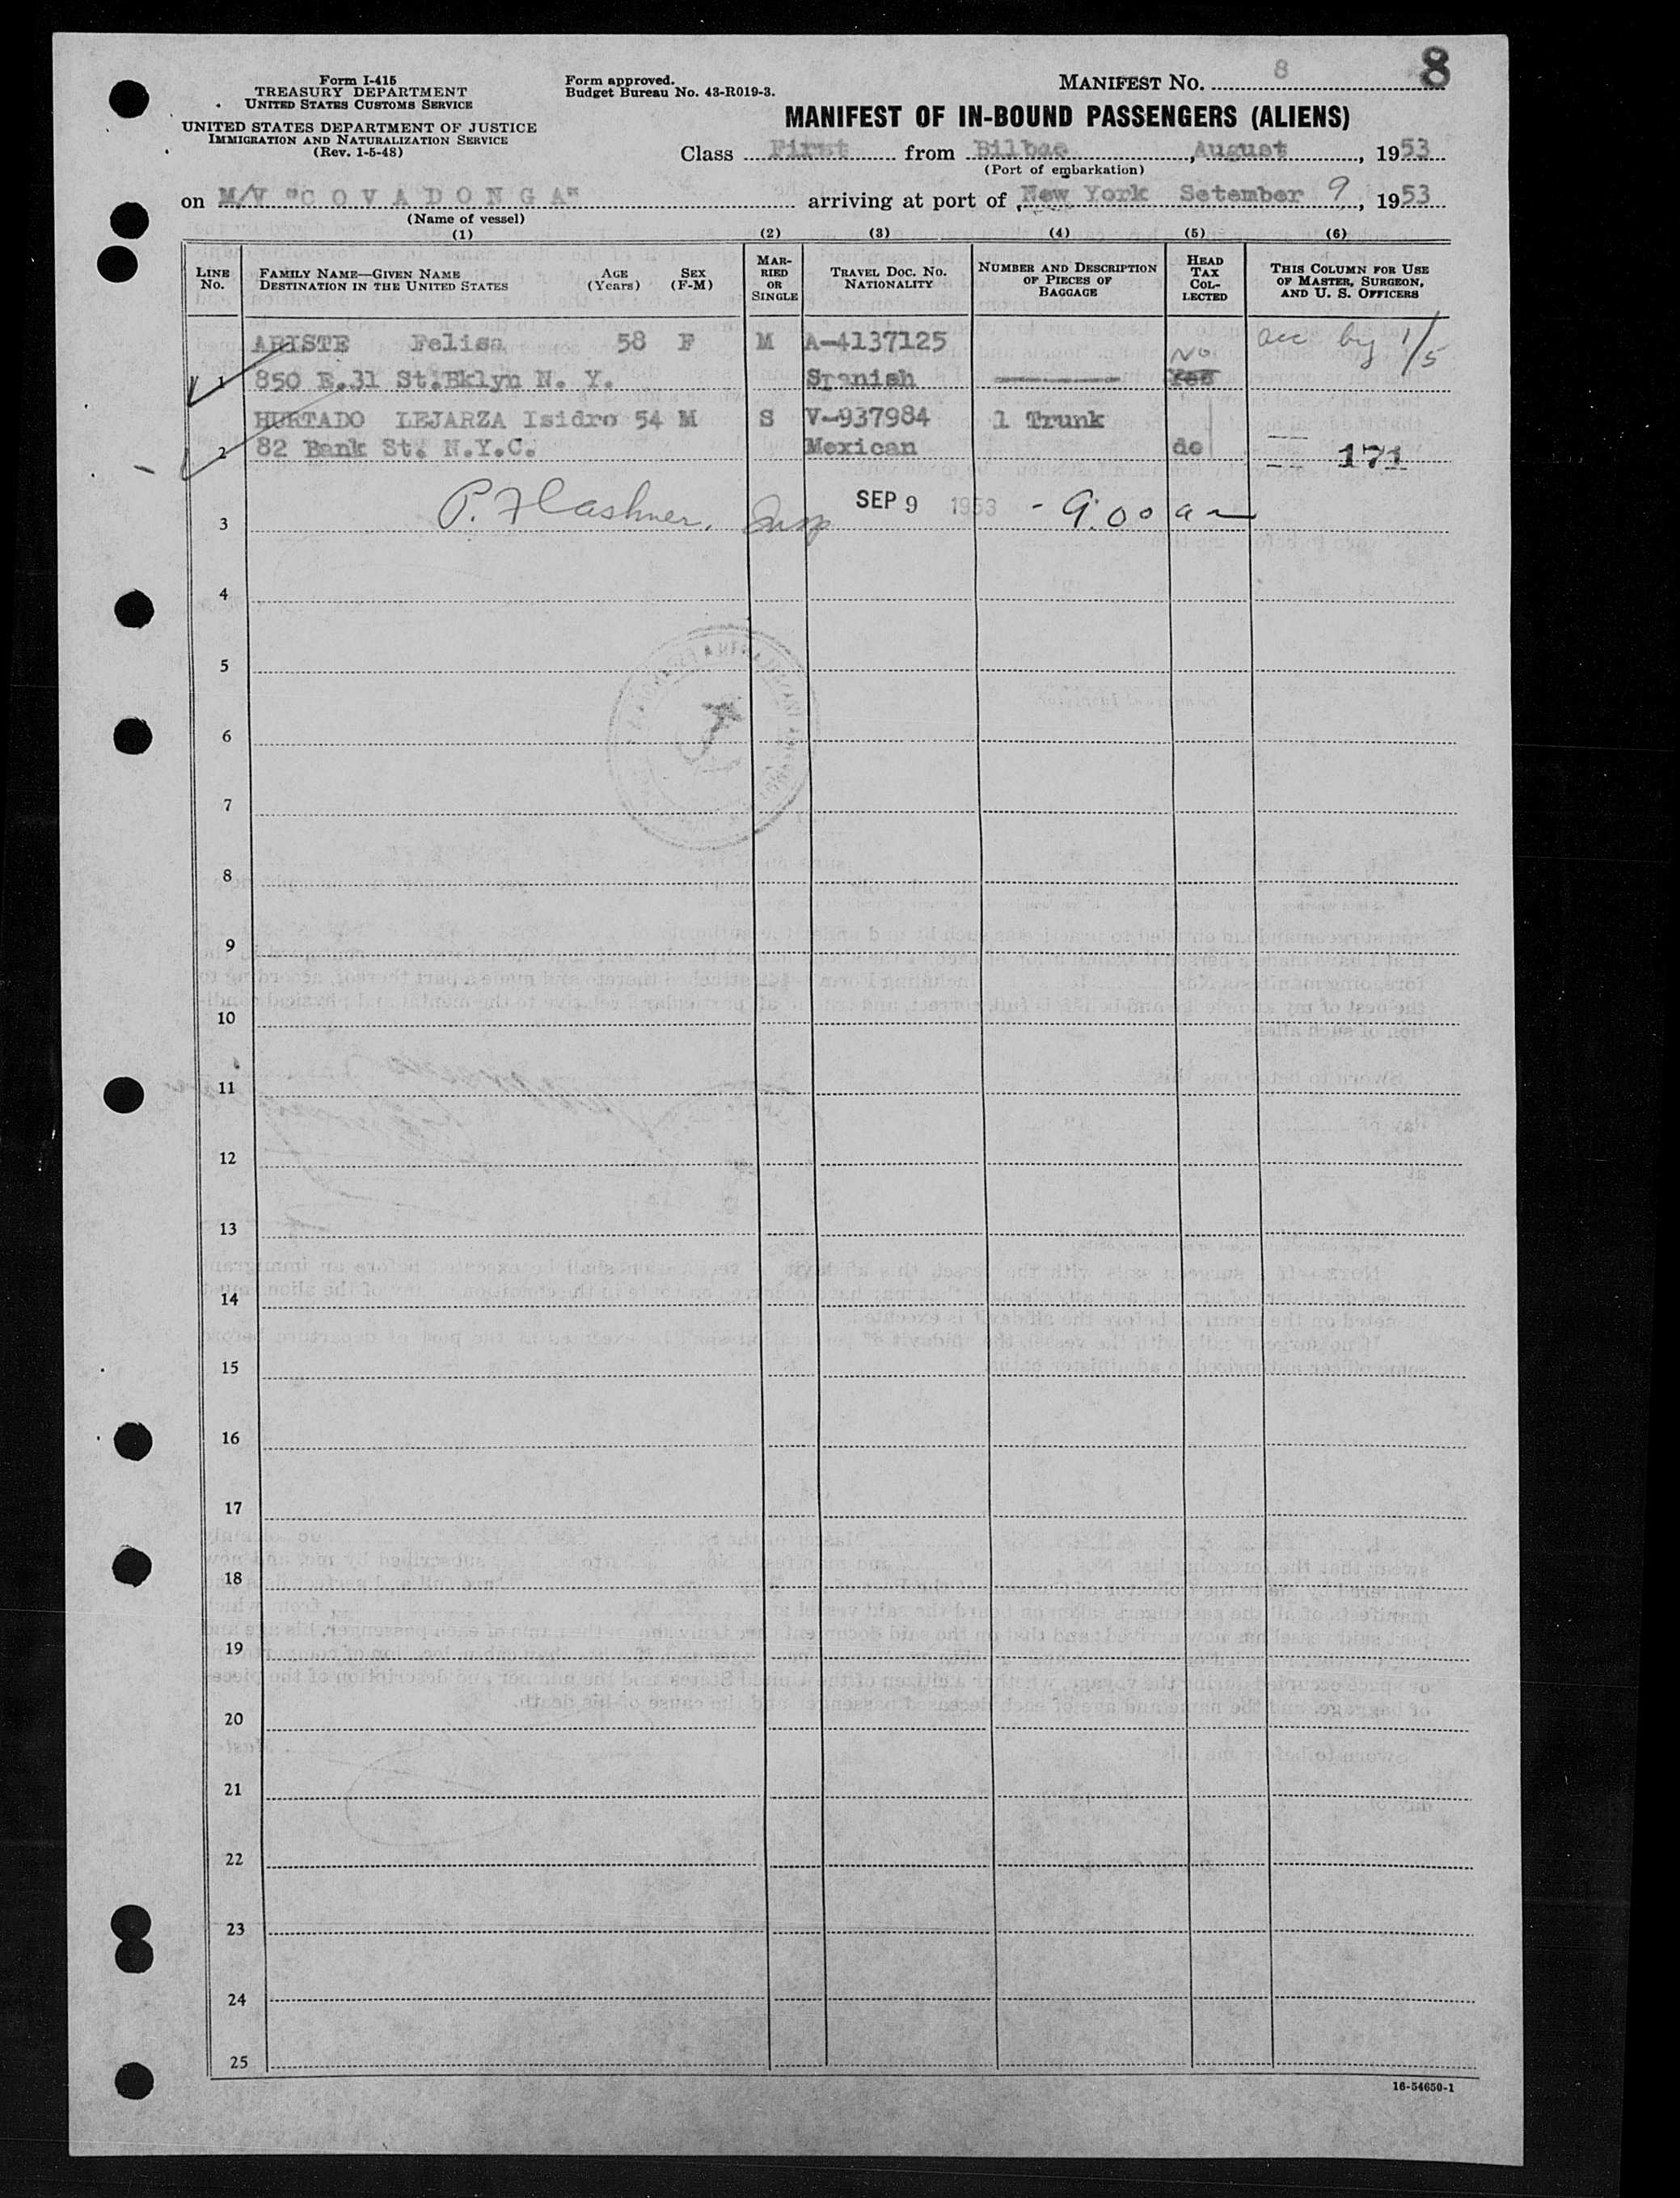 Form I-415
TREASURY DEPARTMENT
UNITED STATES CUSTOMS SERVICE
UNITED STATES DEPARTMENT OF JUSTICE
IMMIGRATION AND NATURALIZATION SERVICE
(Rev. 1-5-48)
Form approved.
Budget Bureau No. 43-R019-3.
MANIFEST No. 8
8
MANIFEST OF IN-BOUND PASSENGERS (ALIENS)
Class First from Bilbao, August, 1953
(Port of embarkation)
on M/V "C O V A D O N G A" arriving at port of New York Setember 9, 1953
(Name of vessel)
(1) (2) (3) (4) (5) (6)
LINE No.
FAMILY NAME—GIVEN NAME
DESTINATION IN THE UNITED STATES
AGE (Years)
SEX (F-M)
MARRIED OR SINGLE
TRAVEL DOC. NO.
NATIONALITY
NUMBER AND DESCRIPTION OF PIECES OF BAGGAGE
HEAD TAX COLLECTED
THIS COLUMN FOR USE OF MASTER, SURGEON, AND U. S. OFFICERS
ARISTE Felisa 58 F M A-4137125 acc by 1/5
No
1 850 E.31 St.Bklyn N. Y. Spanish ------- Yes
HURTADO LEJARZA Isidro 54 M S V-937984 1 Trunk
2 82 Bank St. N.Y.C. Mexican do 171
3 P. Flashner, Insp SEP 9 1953 - 9:00 am
4
5
6
7
8
9
10
11
12
13
14
15
16
17
18
19
20
21
22
23
24
25
16-54650-1